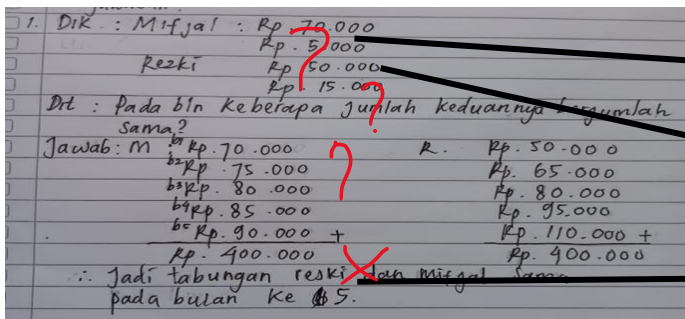 1. Dik : Mifjal : Rp. 70.000
Rp. 5.000
Rezki Rp 50.000
Rp. 15.000
Drt : Pada bln Keberapa Jumlah keduannya bergumlah
sama?
Jawab : M b1 Rp. 70.000 R. Rp. 50.000
b2 Rp. 75.000 Rp. 65.000
b3 Rp. 80.000 Rp. 80.000
b4 Rp. 85.000 Rp. 95.000
b5 Rp. 90.000 + Rp. 110.000 +
Rp. 400.000 Rp. 400.000
∴ Jadi tabungan reski dan mifjal sama
pada bulan Ke 5.